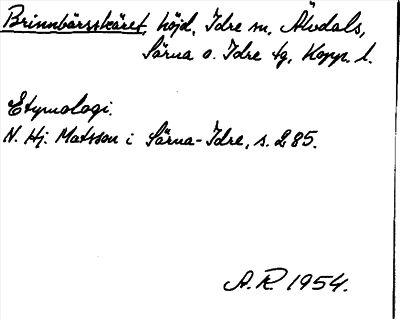 Brinnbärsskäret, höjd, Idre sn, Älvdals,
Särna o. Idre tg, Kopp. l.
Etymologi.
N. Hj. Matsson i Särna-Idre, s. 285.
A.R. 1954.